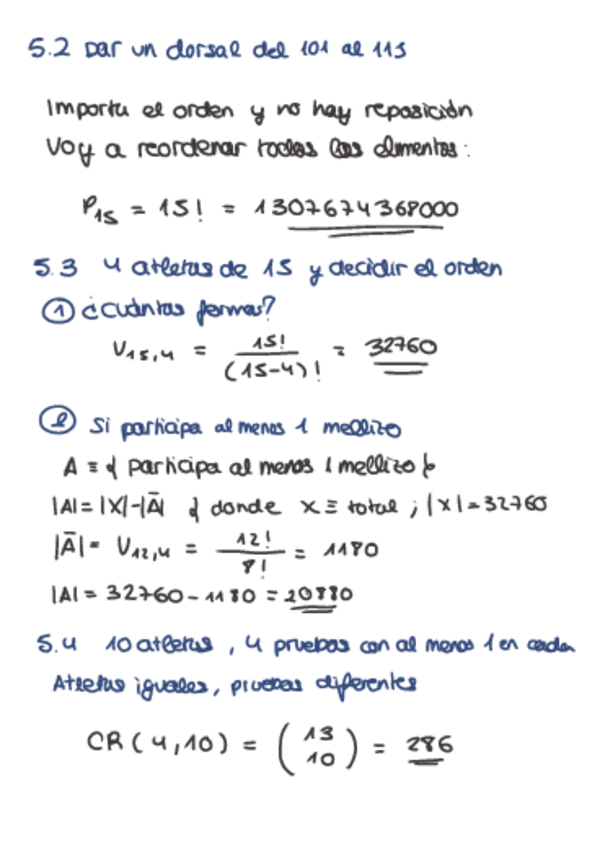 5.2 Dar un dorsal del 101 al 115
Importa el orden y no hay reposición
Voy a reordenar todos los elmentos:
P₁₅ = 15! = 1307674368000
5.3 4 atletas de 15 y decidir el orden
① ¿cuántas formas?
V₁₅,₄ = 15! / (15-4)! = 32760
② Si participa al menos 1 mellizo
A ≡ { participa al menos 1 mellizo }
|A| = |X|-|Ā| { donde X ≡ total ; |X| = 32760
|Ā| = V₁₂,₄ = 12! / 8! = 1180
|A| = 32760 - 1180 = 20880
5.4 10 atletas, 4 pruebas con al menos 1 en cada
Atletas iguales, pruebas diferentes
CR(4,10) = (13 10) = 286